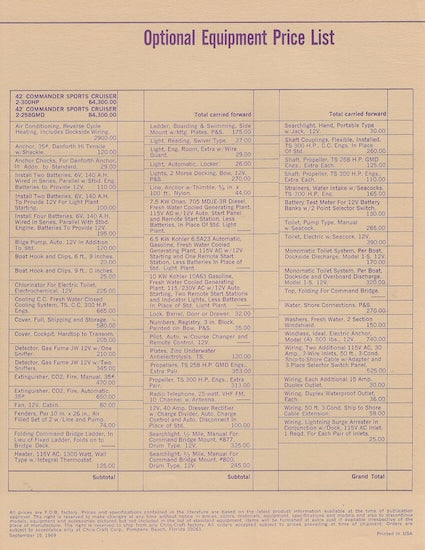 Optional Equipment Price List
42 COMMANDER SPORTS CRUISER
2-300HP 64,300.00
42 COMMANDER SPORTS CRUISER
2-258GMD 84,300.00
Air Conditioning, Reverse Cycle
Heating, Includes Dockside Wiring.
2900.00
Anchor, 35#, Danforth Hi Tensile
w/Shackle. 120.00
Anchor Chocks, For Danforth Anchor,
In Addn. to Standard. 29.00
Install Two Batteries, 6V, 140 A.H.
Wired in Series, Parallel w/Stbd. Eng.
Batteries to Provide 12V. 110.00
Install Two Batteries, 6V, 140 A.H.
To Provide 12V For Light Plant
Starting. 100.00
Install Four Batteries, 6V, 140 A.H.
Wired in Series, Parallel With Stbd.
Engine, Batteries To Provide 12V.
195.00
Bilge Pump, Auto. 12V In Addition
To Std. 120.00
Boat Hook and Clips, 6 ft., 9 inches.
23.00
Boat Hook and Clips, 9 ft., 0 inches.
25.00
Chlorinator For Electric Toilet,
Electrochemical, 12V. 225.00
Cooling C.C. Fresh Water Closed
Cooling System, TS, C.C. 300 H.P.
Engs. 665.00
Cover, Full, Shipping and Storage.
580.00
Cover, Cockpit, Hardtop to Transom.
205.00
Detector, Gas Fume JW 12V w/One
Sniffer. 210.00
Detector, Gas Fume JW 12V w/Two
Sniffers. 345.00
Extinguisher, CO2, Fire, Manual, 35#.
470.00
Extinguisher, CO2, Fire, Automatic
35#. 650.00
Fan, 12V, Cabin. 60.00
Fenders, Per 10 in. x 26 in., Air
Filled Set of 2 w/Line and Pump.
74.00
Folding Command Bridge Ladder, In
Lieu of Fixed Ladder, Folds on to
Bridge Deck.
Heater, 115V AC, 1300 Watt, Wall
Type w/Integral Thermostat
125.00
Subtotal
Total carried forward
Ladder, Boarding & Swimming, Side
Mount w/Mtg. Plates. P&S. 175.00
Light, Reading, Swivel Type. 37.00
Light, Eng. Room, Extra w/Wire
Guard. 29.00
Light, Automatic, Locker. 26.00
Lights, 2 Morse Docking, Bow, 12V,
P&S. 270.00
Line, Anchor w/Thimble, ½ in x
100 ft., Nylon. 44.00
7.5 KW Onan, 705 MDJE-3R Diesel,
Fresh Water Cooled Generating Plant,
115V AC w/12V Auto. Start Panel
and Remote Start Station, Less
Batteries, In Place of Std. Light
Plant.
6.5 KW Kohler 6.5A23 Automatic,
Gasoline, Fresh Water Cooled
Generating Plant, 115V AC w/12V
Starting and One Remote Start
Station, Less Batteries In Place of
Std. Light Plant
10 KW Kohler 10A63 Gasoline,
Fresh Water Cooled Generating
Plant, 115/230V AC w/12V Auto.
Starting, Two Remote Start Stations
and Indicator Lights, Less Batteries
In Place of Std. Light Plant.
Lock, Barrel, Door or Drawer. 32.00
Numbers, Registry, 3 in. Block,
Painted on Bow, P&S. 35.00
Pilot, Auto. w/Course Changer and
Remote Control, 12V.
Plates, Zinc Underwater
Antielectrolysis, TS. 120.00
Propellers, TS 258 H.P. GMD Engs.,
Extra Pair. 353.00
Propeller, TS 300 H.P. Engs., Extra
Pair. 313.00
Radio Telephone, 25-watt, VHF FM,
10 Channel w/Antenna.
12V, 40 Amp. Diesser Rectifier
w/Charge Divider, Auto. Charge
Control and Auto. Disconnect In
Place of Std. 100.00
Searchlight, ½ Mile, Manual For
Command Bridge Mount, #877,
Drum Type, 12V. 325.00
Searchlight, ½ Mile, Manual For
Command Bridge Mount, #800,
Drum Type, 12V. 245.00
Subtotal
Total carried forward
Searchlight, Hand, Portable Type
w/Jack, 12V. 30.00
Shaft Couplings, Flexible, Installed,
TS 300 H.P., C.C. Engs. In Place
Of Std. 260.00
Shaft, Propeller, TS 258 H.P. GMD
Engs., Extra Each 125.00
Shafts, Propeller, TS 300 H.P.
Engs., Extra Each. 110.00
Strainers, Water Intake w/Seacocks.
TS 700 H.P. Eng. 165.00
Battery Test Meter For 12V Battery
Banks w/2 Point Selector Switch.
130.00
Toilet, Pump Type, Manual
w/Seacock. 265.00
Toilet, Electric w/Seacock, 12V.
190.00
Monomatic Toilet System, Per Boat,
Dockside Discharge, Model 1-S, 12V.
170.00
Monomatic Toilet System, Per Boat,
Dockside and Overboard Discharge,
Model 10-S, 12V. 300.00
Top, Folding For Command Bridge.
Water, Shore Connections. P&S.
270.00
Washers, Fresh Water, 2 Section
Windshield. 150.00
Windlass, Ideal, Electric, Anchor,
Model (A) 300 lbs., 12V. 740.00
Wiring, Two Additional 115V AC, 30
Amp., 3-Wire Inlets, 50 ft., 3-Cond.
Ship-to-Shore Cable w/Adapter and
3 Place Selector Switch Panel.
525.00
Wiring, Each Additional 15 Amp.
Duplex Outlet. 30.00
Wiring, Duplex Waterproof Outlet,
Each. 36.00
Wiring, 50 ft. 3-Cond. Ship to Shore
Cable Extension. 59.00
Wiring, Lightning Surge Arrester in
Conjunction w/Dock, 115V AC Inlet,
1 Reqd. For Each Pair of Inlets.
25.00
Grand Total
All prices are F.O.B. factory. Prices and specifications contained in the literature are based on the latest product information available at the time of publication
September 15, 1969
Printed in USA